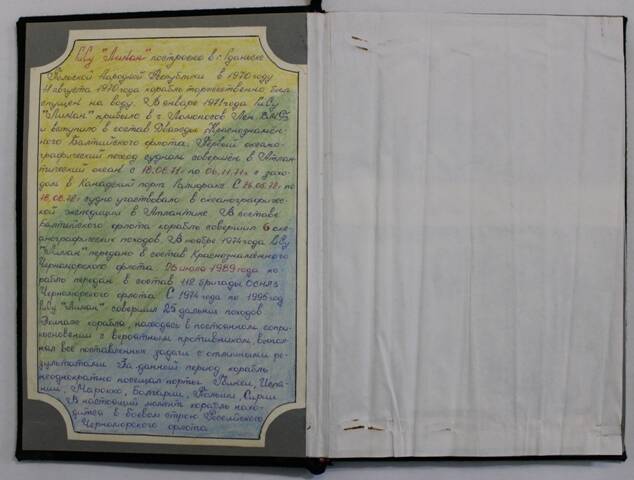 ГиСу "Лиман" построено в г. Гданьске
Польской Народной Республики в 1970 году
11 августа 1970 года корабль торжественно был
спущен на воду. В январе 1971 года ГиСу
"Лиман" прибыло в г. Ломоносов Лен. ВМБ
и вступило в состав Дважды Краснознамен-
ного Балтийского флота. Первый океано-
графический поход судном совершен в Атлан-
тический океан с 18.08.71г по 06.11.71г с захо-
дом в Канадский порт Галифакс. С 26.05.72г по
18.08.72г судно участвовало в океанографичес-
кой экспедиции в Атлантике. В составе
Балтийского флота корабль совершил 6 оке-
анографических походов. В ноябре 1974 года ГиСу
"Лиман" передано в состав Краснознаменного
Черноморского флота. 26 июля 1989 года ко-
рабль передан в состав 112 бригады ОСНАЗ
Черноморского флота. С 1974 года по 1995 год
ГиСу "Лиман" совершил 25 дальних походов
Экипаж корабля, находясь в постоянном сопри-
косновении с вероятным противником, выпол-
нял все поставленные задачи с отличными ре-
зультатами. За данный период корабль
неоднократно посещал порты Ливии, Испа-
нии, Марокко, Болгарии, Польши, Сирии
В настоящий момент корабль нахо-
дится в боевом строю Российского
Черноморского флота